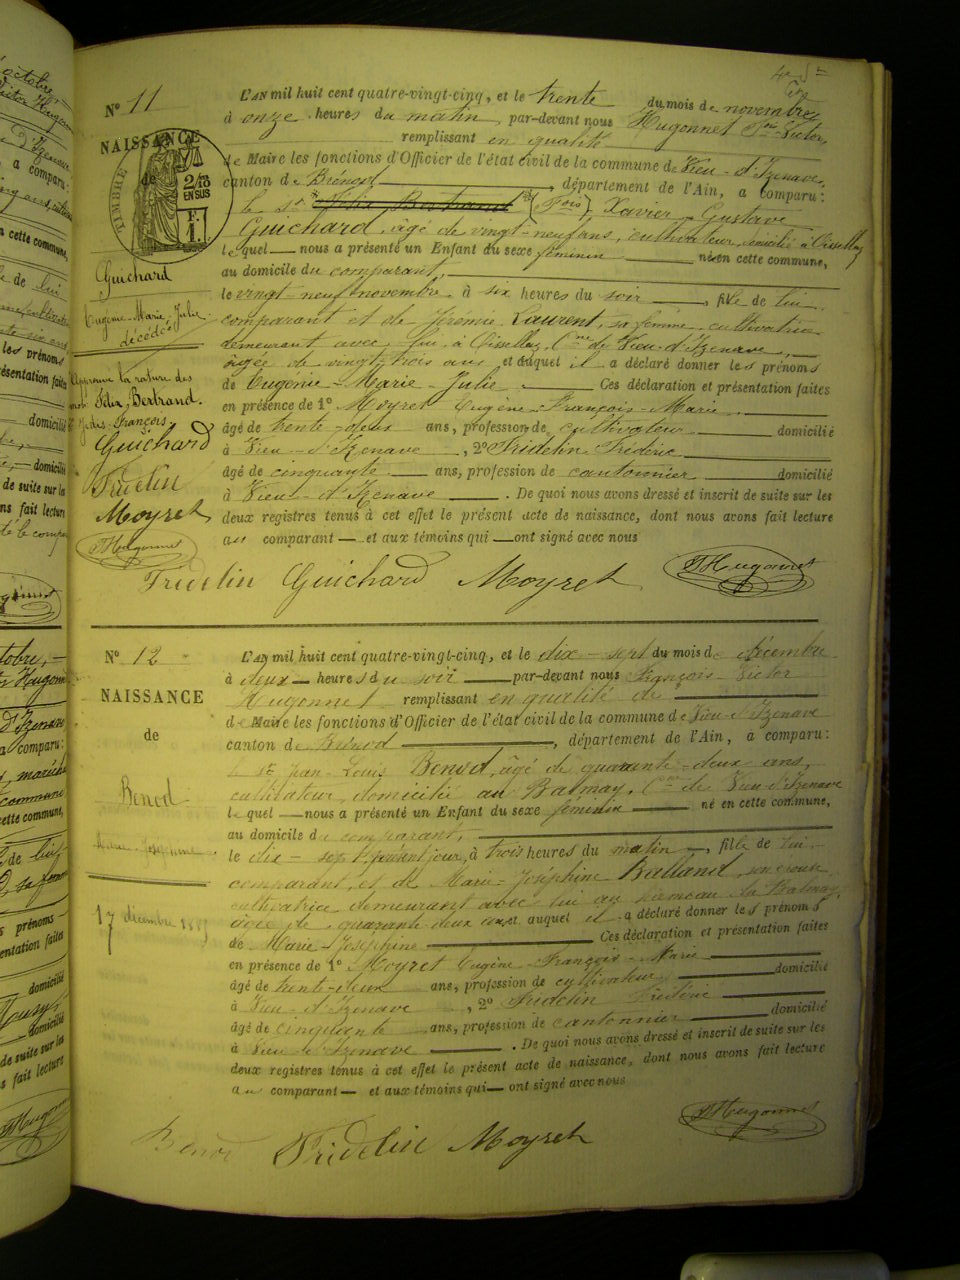 N° 11
NAISSANCE
de
TIMBRE
2/10
EN SUS
Guichard
Eugénie-Marie-Julie
décédée
Approuvé la rature des
mots Félix Bertrand.
Guichard
Fridelin
Moyret
FHugonnet
L'AN mil huit cent quatre-vingt-cinq, et le trente du mois de novembre
à onze heures du matin, par-devant nous Hugonnet Fois Victor,
remplissant en qualité
de Maire les fonctions d'Officier de l'état civil de la commune de Vieu-d'Izenave,
canton de Brénod, département de l'Ain, a comparu:
le sr Félix Bertrand (Fois) Xavier Gustave
Guichard, âgé de vingt-neuf ans, cultivateur, domicilié à
lequel nous a présenté un Enfant du sexe féminin né en cette commune,
au domicile du comparant,
le vingt-neuf novembre à six heures du soir, fille de lui
comparant et de Laurent, sa femme, cultivatrice
demeurant avec lui, à Cne de Vieu-d'Izenave,
âgée de vingt-trois ans et auquel il a déclaré donner les prénoms
de Eugénie-Marie-Julie. Ces déclaration et présentation faites
en présence de 1° Moyret Eugène-François-Marie
âgé de trente-deux ans, profession de cultivateur domicilié
à Vieu-d'Izenave, 2° Fridelin Frédéric
âgé de cinquante ans, profession de cantonnier domicilié
à Vieu-d'Izenave. De quoi nous avons dressé et inscrit de suite sur les
deux registres tenus à cet effet le présent acte de naissance, dont nous avons fait lecture
au comparant et aux témoins qui ont signé avec nous
Fridelin Guichard Moyret FHugonnet
N° 12
NAISSANCE
de
Benod
Marie-Josephine
17 décembre 1885
L'AN mil huit cent quatre-vingt-cinq, et le dix-sept du mois de décembre
à deux heures du soir par-devant nous François Victor
Hugonnet remplissant en qualité de
de Maire les fonctions d'Officier de l'état civil de la commune de Vieu-d'Izenave
canton de Brénod, département de l'Ain, a comparu:
le sr Jean-Louis Benod, âgé de quarante-deux ans,
cultivateur, domicilié au Balmay, Cne de Vieu-d'Izenave
lequel nous a présenté un Enfant du sexe féminin né en cette commune,
au domicile du comparant,
le dix-sept, présent jour, à trois heures du matin, fille de lui
comparant, et de Marie-Joséphine Balland, son épouse
cultivatrice demeurant avec lui au hameau du Balmay
âgée de quarante-deux ans et auquel il a déclaré donner les prénoms
de Marie-Josephine Ces déclaration et présentation faites
en présence de 1° Moyret Eugène-François-Marie
âgé de trente-deux ans, profession de cultivateur domicilié
à Vieu-d'Izenave, 2° Fridelin Frédéric
âgé de cinquante ans, profession de cantonnier domicilié
à Vieu-d'Izenave. De quoi nous avons dressé et inscrit de suite sur les
deux registres tenus à cet effet le présent acte de naissance, dont nous avons fait lecture
au comparant et aux témoins qui ont signé avec nous
Benod Fridelin Moyret FHugonnet